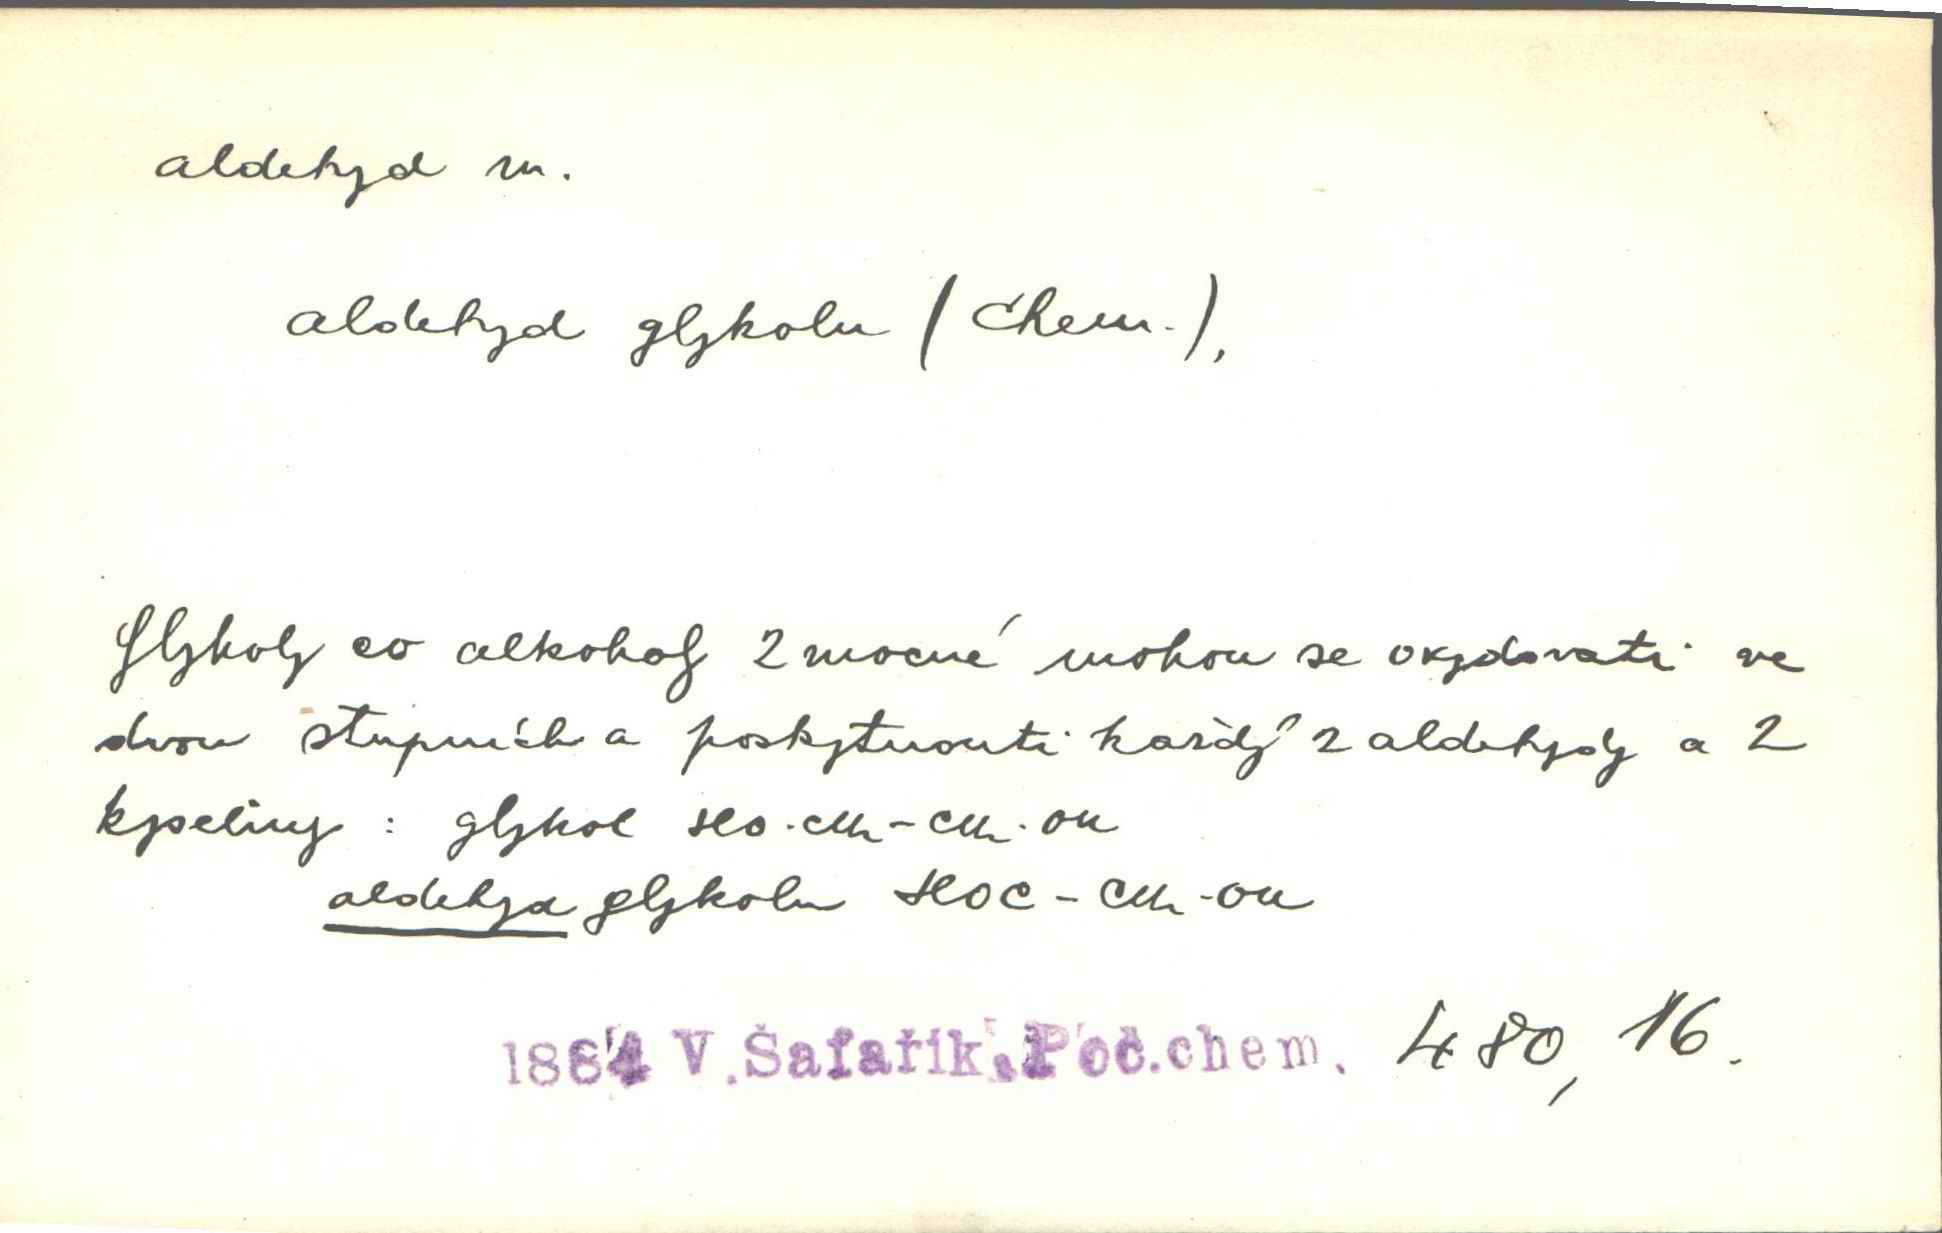 aldehyd m.
aldehyd glykolu (Chem.),
Glykoly co alkoholy 2mocné mohou se oxydovati ve
dvou stupních a poskytnouti každý 2 aldehydy a 2
kyseliny : glykol HO.CH₂-CH₂.OH
aldehyd glykolu HOC-CH₂-OH
1884 V.Šafařík.Poč.chem. 480, 16.